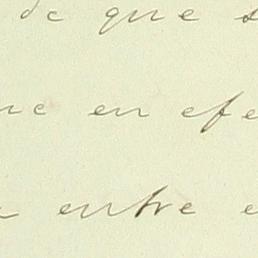 de que s
ne en efe
entre e